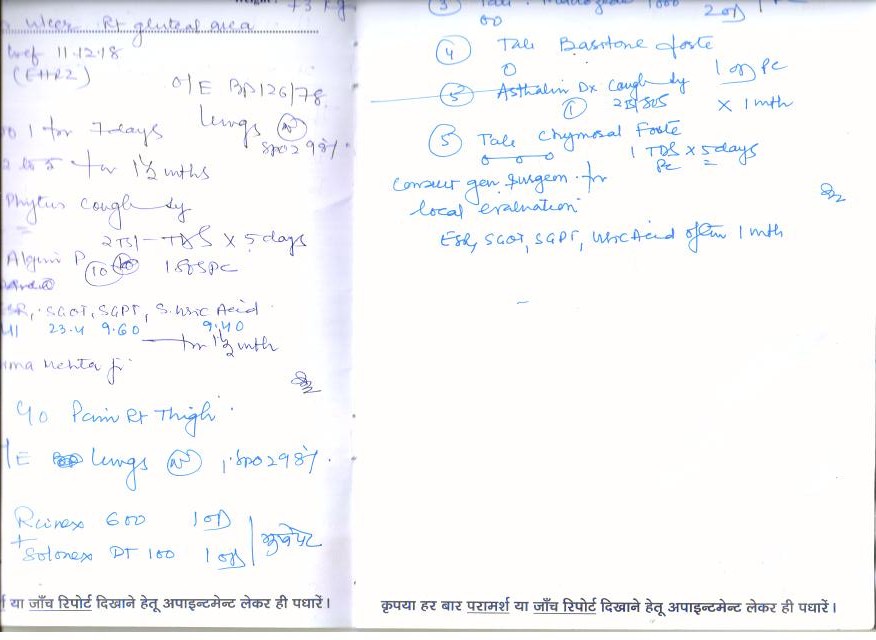 +3 kg
ulcer Rt gluteal area
11.12.18
(EHRZ)
O/E BP 126/78
Lungs (N)
SpO2 98%.
1 for 7 days
2 to 5 for 1½ mths
Phytus cough sy
2TSF - TDS x 5 days
P (10) 1 SOS PC
SGOT, SGPT, S. Uric Acid
23.4 9.60 9.40
for 1½ mth
Mehta ji
Pain Rt Thigh
/E Lungs (N), SpO2 98%.
Rcinex 600 1 OD
+
Solonex DT 100 1 OD
या जाँच रिपोर्ट दिखाने हेतू अपाइन्टमेन्ट लेकर ही पधारें।
(3) Tab. 1000 2 OD
(4) Tab Basitone forte
1 OD PC
(5) Asthalin Dx Cough sy
(1) 2TSF SOS x 1 mth
(5) Tab Chymosal Forte
1 TDS x 5 days
PC
Consult gen. surgeon for
local evaluation
ESR, SGOT, SGPT, Uric Acid after 1 mth
कृपया हर बार परामर्श या जाँच रिपोर्ट दिखाने हेतू अपाइन्टमेन्ट लेकर ही पधारें।